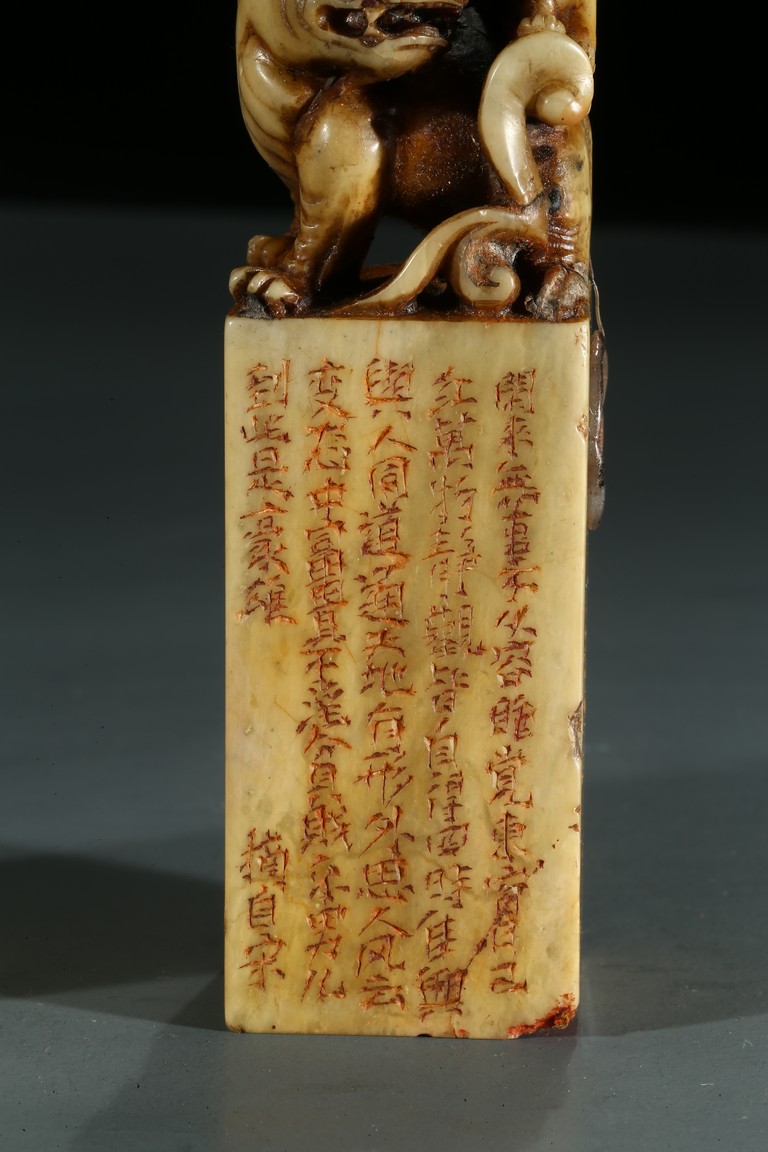 閑来無事不从容睡覚東窗日已
红萬物静觀皆自得四時佳興
與人同道通天地有形外思入风云
变态中富貴不淫貧賤乐男儿
到此是豪雄 摘自宋